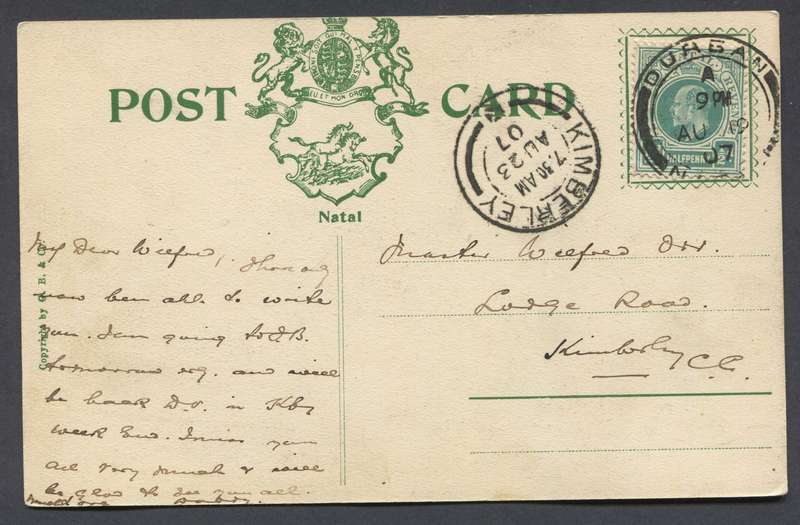 POST CARD
DIEU ET MON DROIT
Natal
DURBAN
A
9 PM
AU 19
07
HALFPENNY
KIMBERLEY
7.30 AM
AU 23
07
Copyright by B. & Co
My Dear Wilfred,
now been able to write
you. I am going to
tomorrow evg. and will
be back D.V. in Kby
week End. I miss you
all very much & will
be glad to see you all.
Master Wilfred Orr.
Lodge Road.
Kimberley C.C.